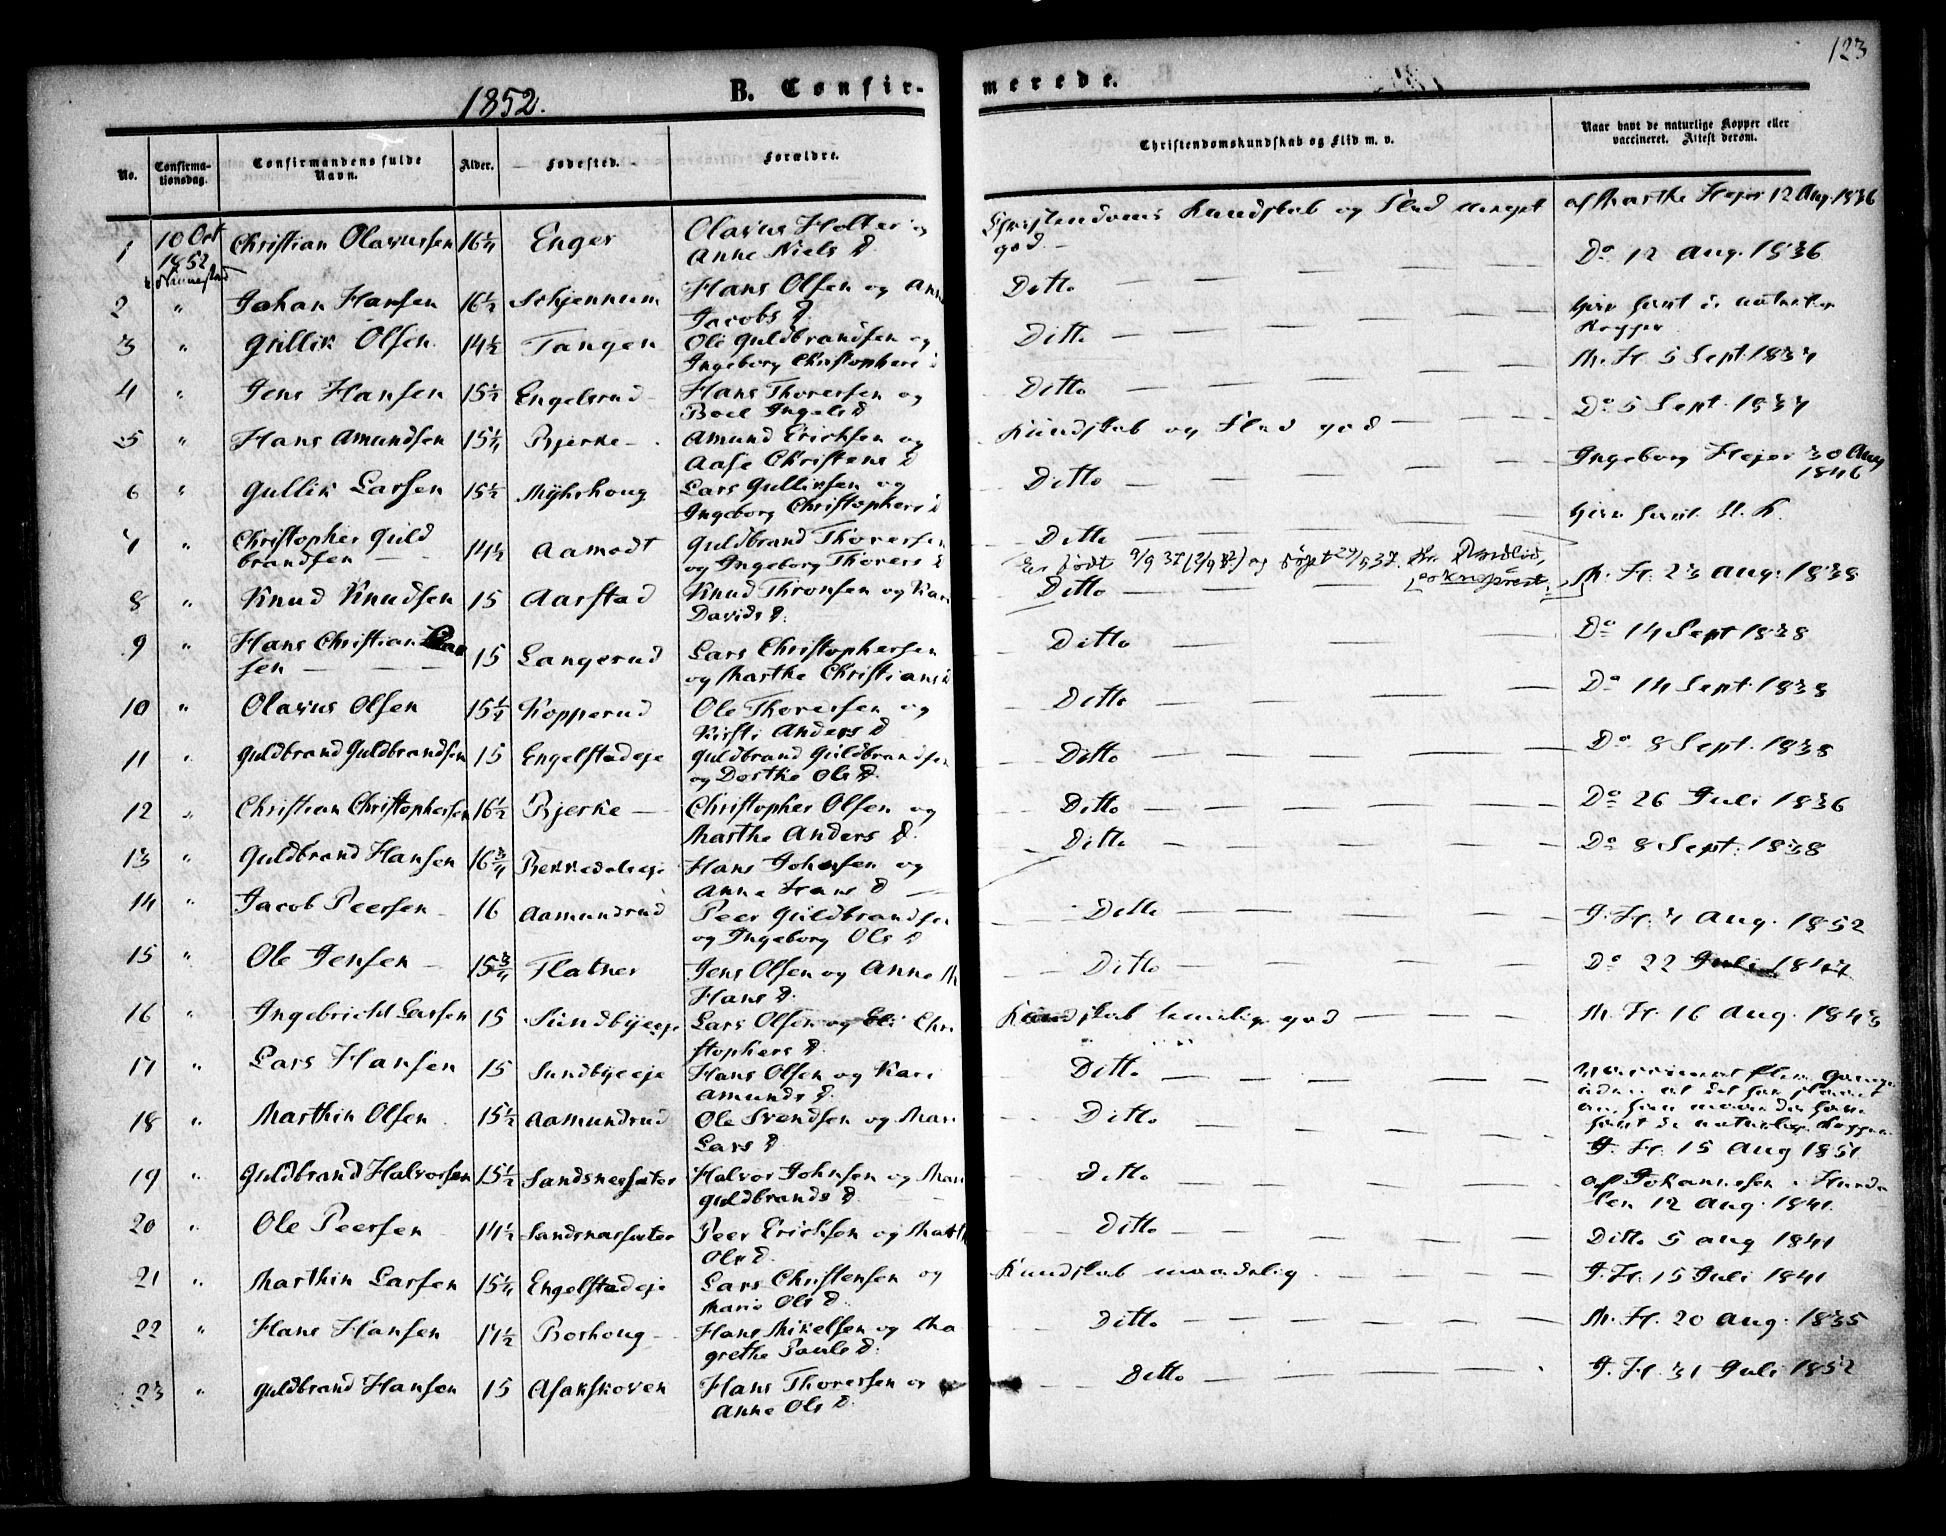 123
1852.
B. Confirmerede.
No.
Confirmationsdag.
Confirmandens fulde Navn.
Alder.
Fødested.
Forældre.
Christendomskundskab og Flid m. v.
Naar havt de naturlige Kopper eller vaccineret. Attest derom.
1 10 Oct 1852 Christian Olavussen 16¼ Enger Olavus Holter og Anne Niels D Christendoms Kundskab og Flid meget god. af Marthe Hejer 12 Aug. 1836
2 " Johan Hansen 16½ Schjennum Hans Olsen og Anne Jacobs D. Ditto Do 12 Aug. 1836
3 " Gullik Olsen 14½ Tangen Ole Guldbrandsen og Ingeborg Christophers D Ditto
4 " Jens Hansen 15½ Engelsrud Hans Thoresen og Boel Ingels D Ditto M. H. 5 Sept. 1837
5 " Hans Amundsen 15¼ Bjerke Amund Ericksen og Aase Christens D Kundskab og Flid god Do 5 Sept. 1837
6 " Gullik Larsen 15½ Myhrhoug Lars Gulliksen og Ingeborg Christophers D Ditto Ingeborg Hejer 30 Aug 1846
7 " Christopher Guldbrandsen 14½ Aamodt Guldbrand Thoresen og Ingeborg Thorers D Ditto
8 " Knud Knudsen 15 Aarstad Knud Thronsen og Kari Davids D. Ditto M. H. 23 Aug. 1838
9 " Hans Christian Larsen 15 Langerud Lars Christophersen og Marthe Christians D Ditto Do 14 Sept 1838
10 " Olavus Olsen 15¼ Kopperud Ole Thoresen og Kirsti Anders D Ditto Do 14 Sept. 1838
11 " Guldbrand Guldbrandsen 15 Engelstadeje Guldbrand Guldbrandsen og Dorthe Ols D. Ditto Do 8 Sept. 1838
12 " Christian Christophersen 16½ Bjerke Christopher Olsen og Marthe Anders D. Ditto Do 26 Juli 1836
13 " Guldbrand Hansen 16¾ Bekkedalseje Hans Johnsen og Anne Hans D Ditto Do 8 Sept. 1838
14 " Jacob Peersen 16 Aamundrud Peer Guldbrandsen og Ingeborg Ols D Ditto J. H. 7 Aug. 1852
15 " Ole Jensen 15¾ Flatner Jens Olsen og Anne M Hans D. Ditto Do 22 Juli 1847
16 " Ingebricht Larsen 15 Sundbyeeje Lars Olsen og Eli Christophers D. Kundskab temelig god M. H. 16 Aug. 1843
17 " Lars Hansen 15 Sundbyeeje Hans Olsen og Kari Amunds D. Ditto
18 " Marthin Olsen 15½ Aamundrud Ole Svendsen og Mari Lars D Ditto J. H. 15 Aug 1851
19 " Guldbrand Halvorsen 15½ Sandsnessæter Halvor Johnsen og Mari Guldbrands D. Ditto af Johannesen i Hurdalen 12 Aug. 1841
20 " Ole Peersen 14½ Sandsnessæter Peer Ericksen og Marthe Ols D. Ditto Ditto 5 Aug 1841
21 " Marthin Larsen 15¼ Engelstadeje Lars Christensen og Marie Ols D. Kundskab maadelig J. H. 15 Juli 1841
22 " Hans Hansen 17½ Borhoug Hans Mikelsen og Magrethe Pauls D. Ditto M. H. 20 Aug. 1835
23 " Guldbrand Hansen 15 Asakskoven Hans Thoresen og Anne Ols D. Ditto J. H. 31 Juli 1852